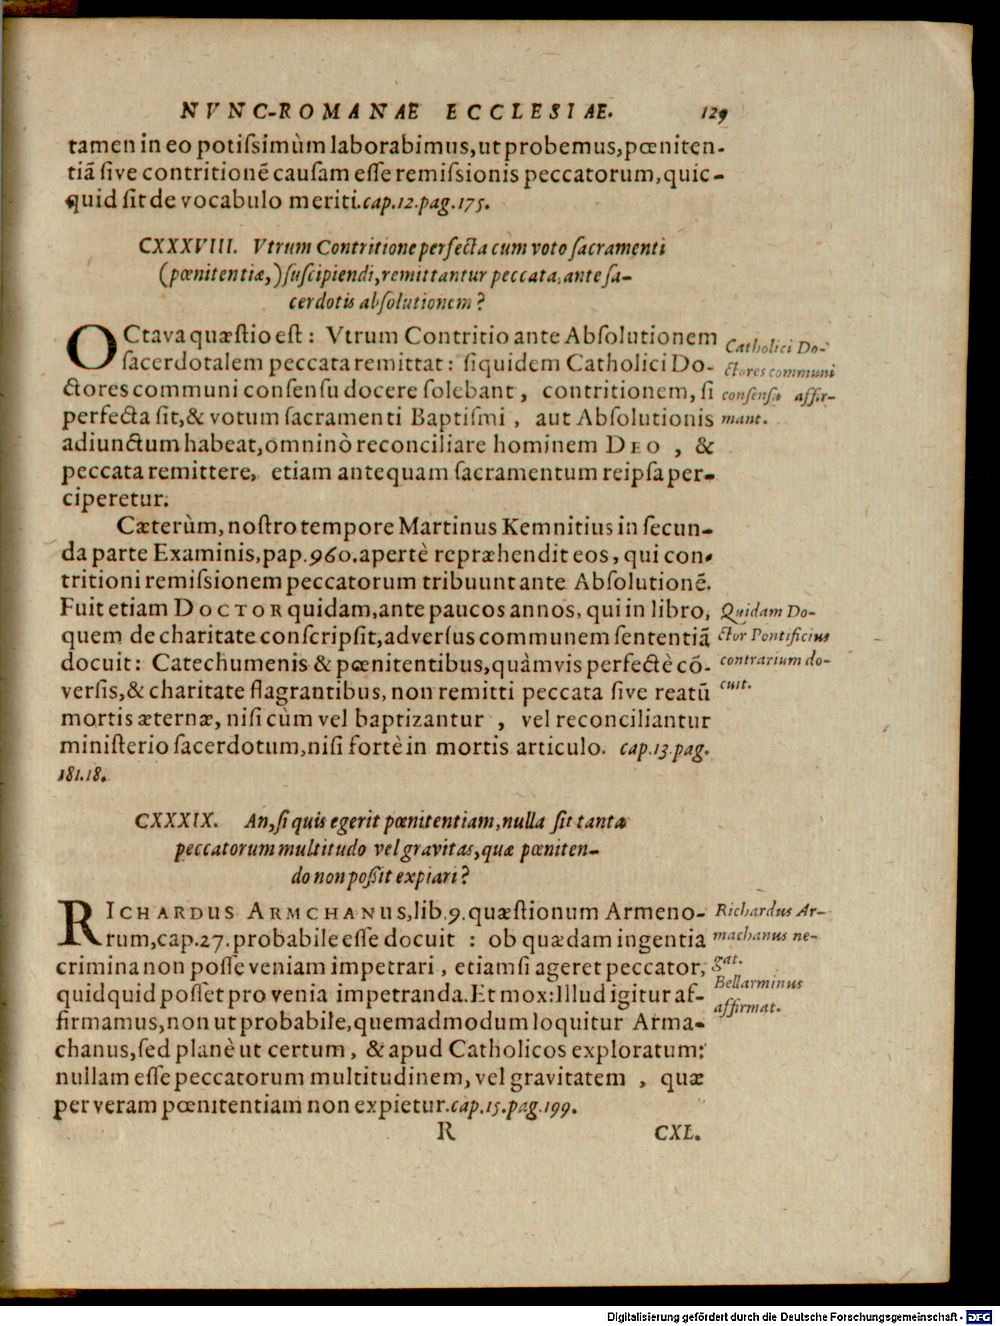 NVNC-ROMANAE ECCLESIAE. 129
tamen in eo potiſsimùm laborabimus, ut probemus, pœniten-
tiã ſive contritionẽ cauſam eſſe remiſsionis peccatorum, quic-
quid ſit de vocabulo meriti. cap.12.pag.175.
CXXXVIII. Vtrum Contritione perfecta cum voto ſacramenti
(pœnitentiæ,) ſuſcipiendi, remittantur peccata, ante ſa-
cerdotis abſolutionem?
OCtava quæſtio eſt: Vtrum Contritio ante Abſolutionem
ſacerdotalem peccata remittat: ſiquidem Catholici Do-
ctores communi conſenſu docere ſolebant, contritionem, ſi
perfecta ſit, & votum ſacramenti Baptiſmi, aut Abſolutionis
adiunctum habeat, omninò reconciliare hominem DEO, &
peccata remittere, etiam antequam ſacramentum reipſa per-
ciperetur.
Catholici Do-
ctores communi
conſenſu affir-
mant.
Cæterùm, noſtro tempore Martinus Kemnitius in ſecun-
da parte Examinis, pap.960. apertè repræhendit eos, qui con-
tritioni remiſsionem peccatorum tribuunt ante Abſolutionẽ.
Fuit etiam DOCTOR quidam, ante paucos annos, qui in libro,
quem de charitate conſcripſit, adverſus communem ſententiã
docuit: Catechumenis & pœnitentibus, quàmvis perfectè cõ-
verſis, & charitate flagrantibus, non remitti peccata ſive reatũ
mortis æternæ, niſi cùm vel baptizantur, vel reconciliantur
miniſterio ſacerdotum, niſi fortè in mortis articulo. cap.13.pag.
181.18.
Quidam Do-
ctor Pontificius
contrarium do-
cuit.
CXXXIX. An, ſi quis egerit pœnitentiam, nulla ſit tanta
peccatorum multitudo vel gravitas, quæ pœniten-
do non poßit expiari?
RICHARDUS ARMCHANUS, lib.9. quæſtionum Armeno-
rum, cap.27. probabile eſſe docuit: ob quædam ingentia
crimina non poſſe veniam impetrari, etiamſi ageret peccator,
quidquid poſſet pro venia impetranda. Et mox: Illud igitur af-
firmamus, non ut probabile, quemadmodum loquitur Arma-
chanus, ſed planè ut certum, & apud Catholicos exploratum:
nullam eſſe peccatorum multitudinem, vel gravitatem, quæ
per veram pœnitentiam non expietur. cap.15.pag.199.
Richardus Ar-
machanus ne-
gat.
Bellarminus
affirmat.
R CXL.
Digitalisierung gefördert durch die Deutsche Forschungsgemeinschaft - DFG